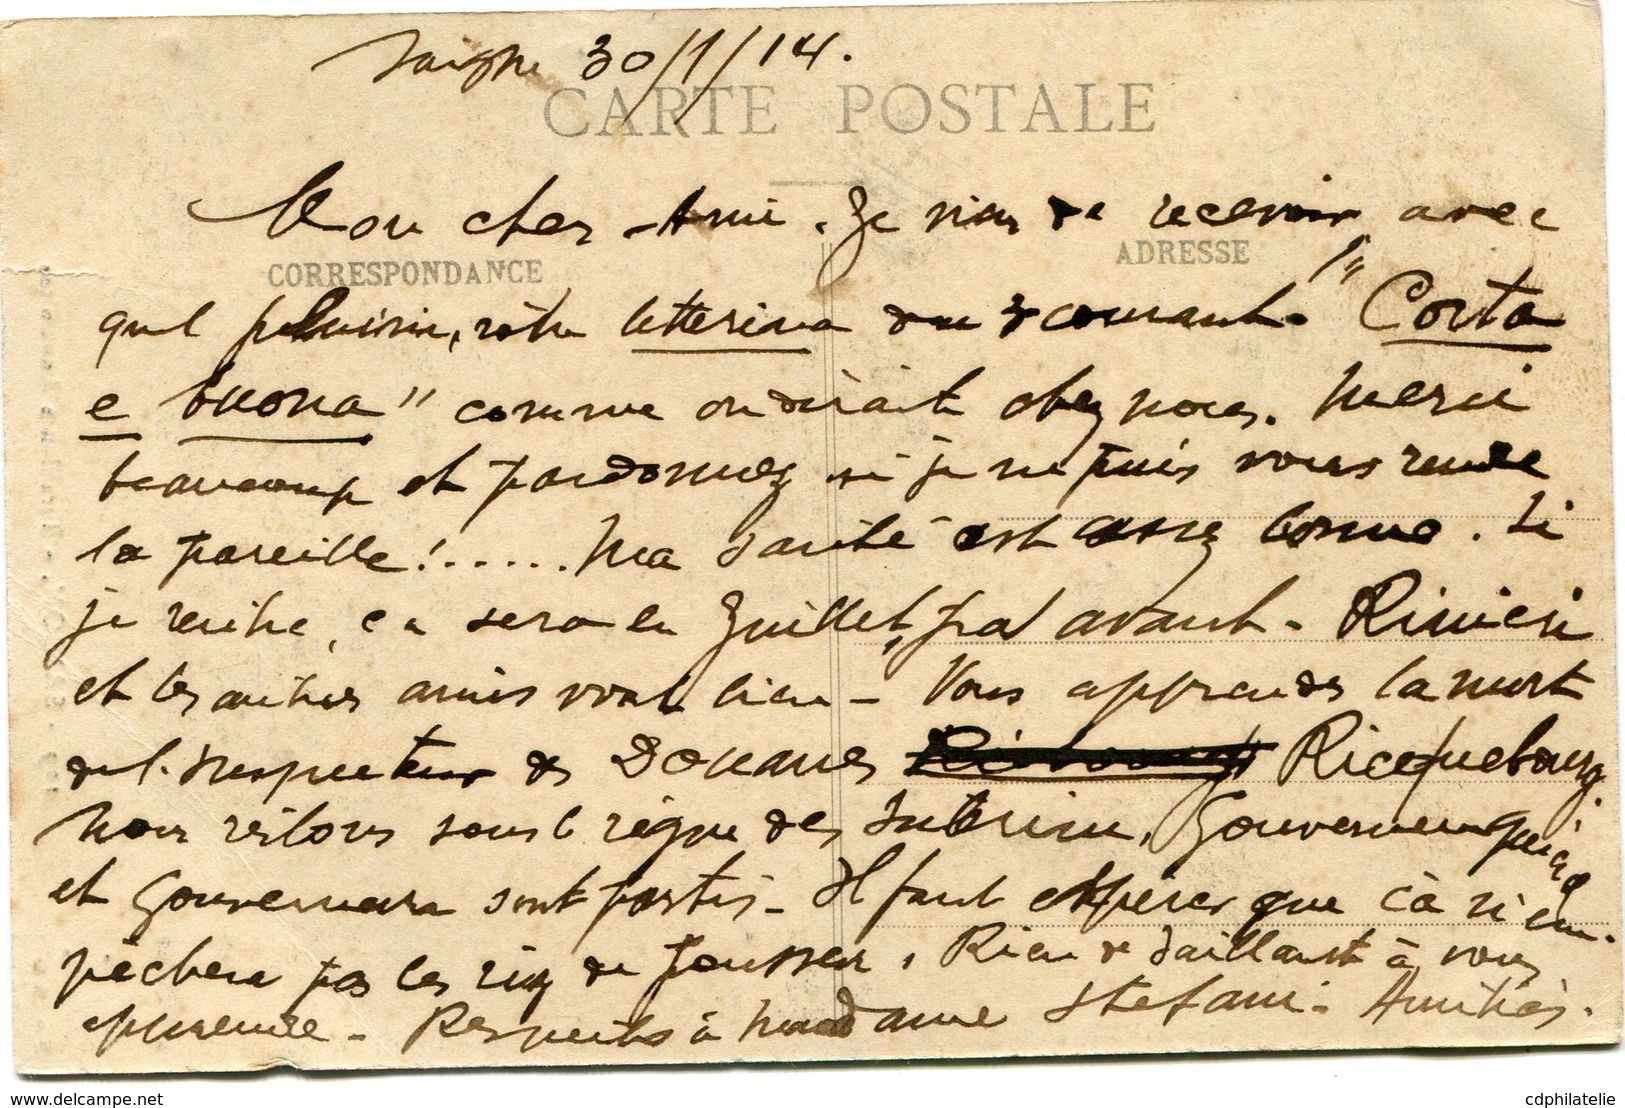 Saigon 30/1/14.
CARTE POSTALE
Mon cher Ami. Je viens de recevoir, avec
CORRESPONDANCE
ADRESSE
quel plaisir, votre letterina du courant. "Corta
e buona" comme on dirait chez nous. Merci
beaucoup et pardonnez si je ne puis vous rendre
la pareille!...... Ma santé est assez bonne. Si
je rentre, ce sera en Juillet, pas avant - Rimieri
et les autres amis vont bien - Vous apprendrez la mort
de l'Inspecteur des Douanes Ricquebourg.
Nous restons sous le règne des Intérim. Gouverneur général
et Gouverneur sont partis - Il faut espérer que ça n'em-
pêchera pas les riz de pousser. Rien de saillant à vous
apprendre - Respects à Madame Stefani - Amitiés.
cdphilatelie.delcampe.net
cdphilatelie